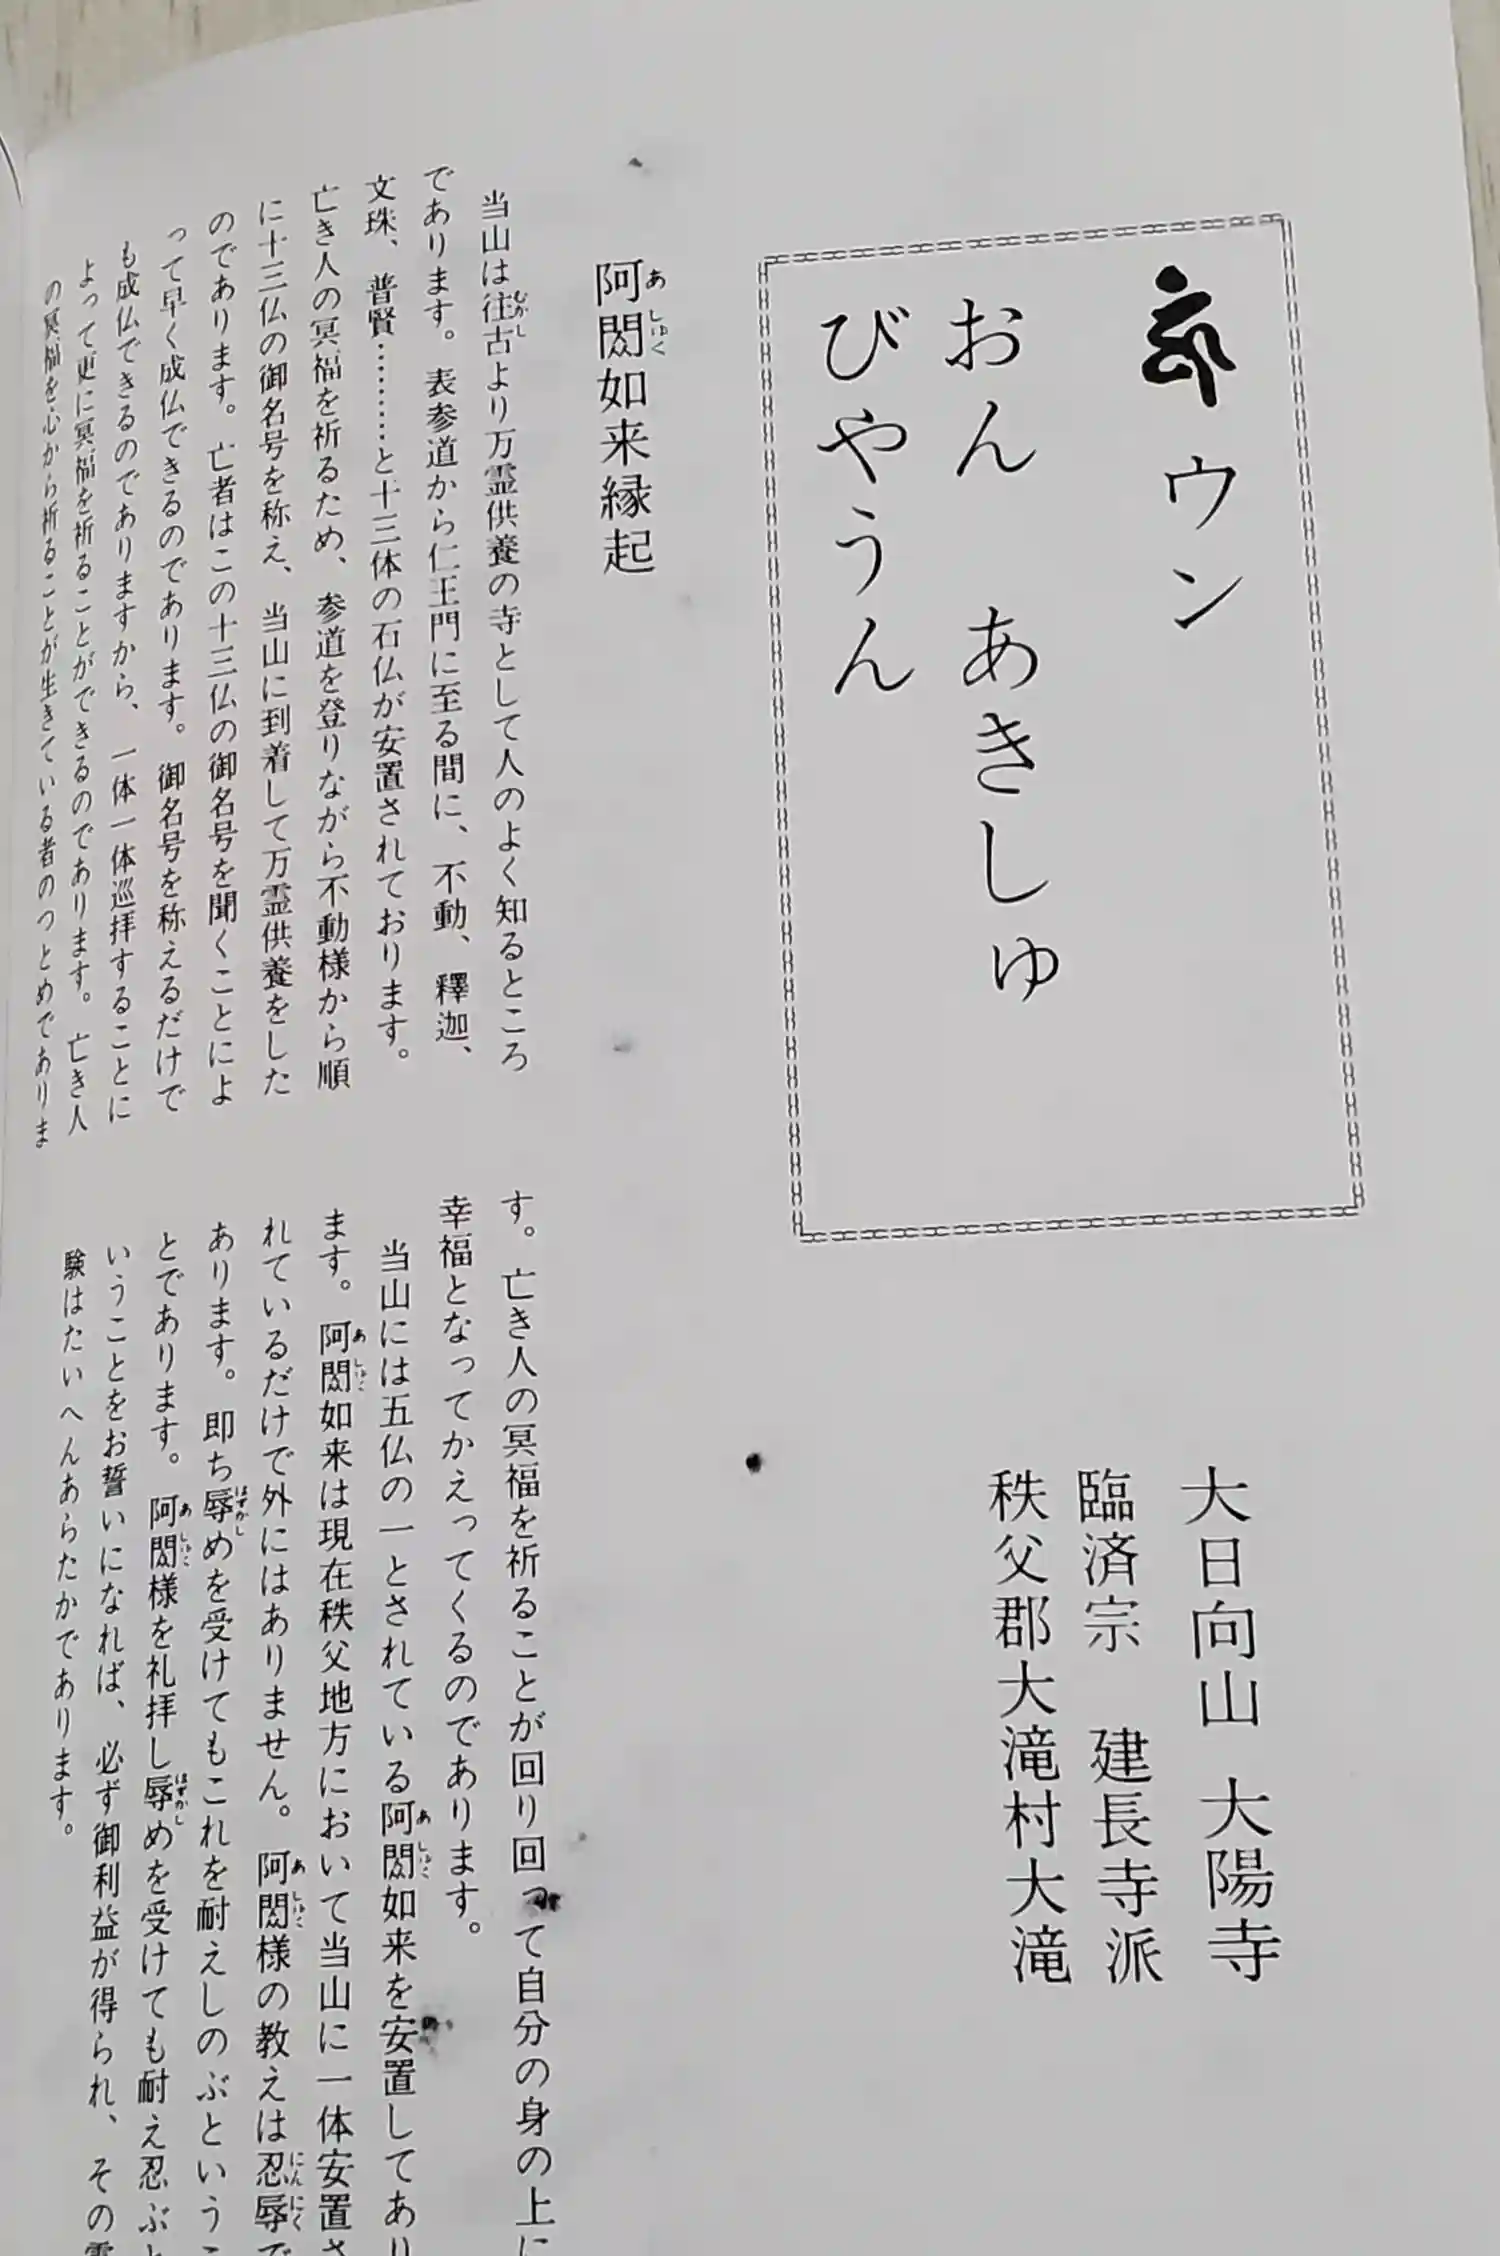 ウン
おん　あきしゅ
びやうん
大日向山　大陽寺
臨済宗　建長寺派
秩父郡大滝村大滝
阿閦如来縁起
あしゅく
当山は往古より万霊供養の寺として人のよく知るところ
むかし
であります。表参道から仁王門に至る間に、不動、釋迦、
文珠、普賢………と十三体の石仏が安置されております。
亡き人の冥福を祈るため、参道を登りながら不動様から順
に十三仏の御名号を称え、当山に到着して万霊供養をした
のであります。亡者はこの十三仏の御名号を聞くことによ
って早く成仏できるのであります。御名号を称えるだけで
も成仏できるのでありますから、一体一体巡拝することに
よって更に冥福を祈ることができるのであります。亡き人
の冥福を心から祈ることが生きている者のつとめでありま
す。亡き人の冥福を祈ることが回り回って自分の身の上に
幸福となってかえってくるのであります。
当山には五仏の一とされている阿閦如来を安置してあり
あしゅく
ます。阿閦如来は現在秩父地方において当山に一体安置さ
あしゅく
れているだけで外にはありません。阿閦様の教えは忍辱で
あしゅく
にんにく
あります。即ち辱めを受けてもこれを耐えしのぶというこ
はずかし
とであります。阿閦様を礼拝し辱めを受けても耐え忍ぶと
あしゅく
はずかし
いうことをお誓いになれば、必ず御利益が得られ、その霊
験はたいへんあらたかであります。